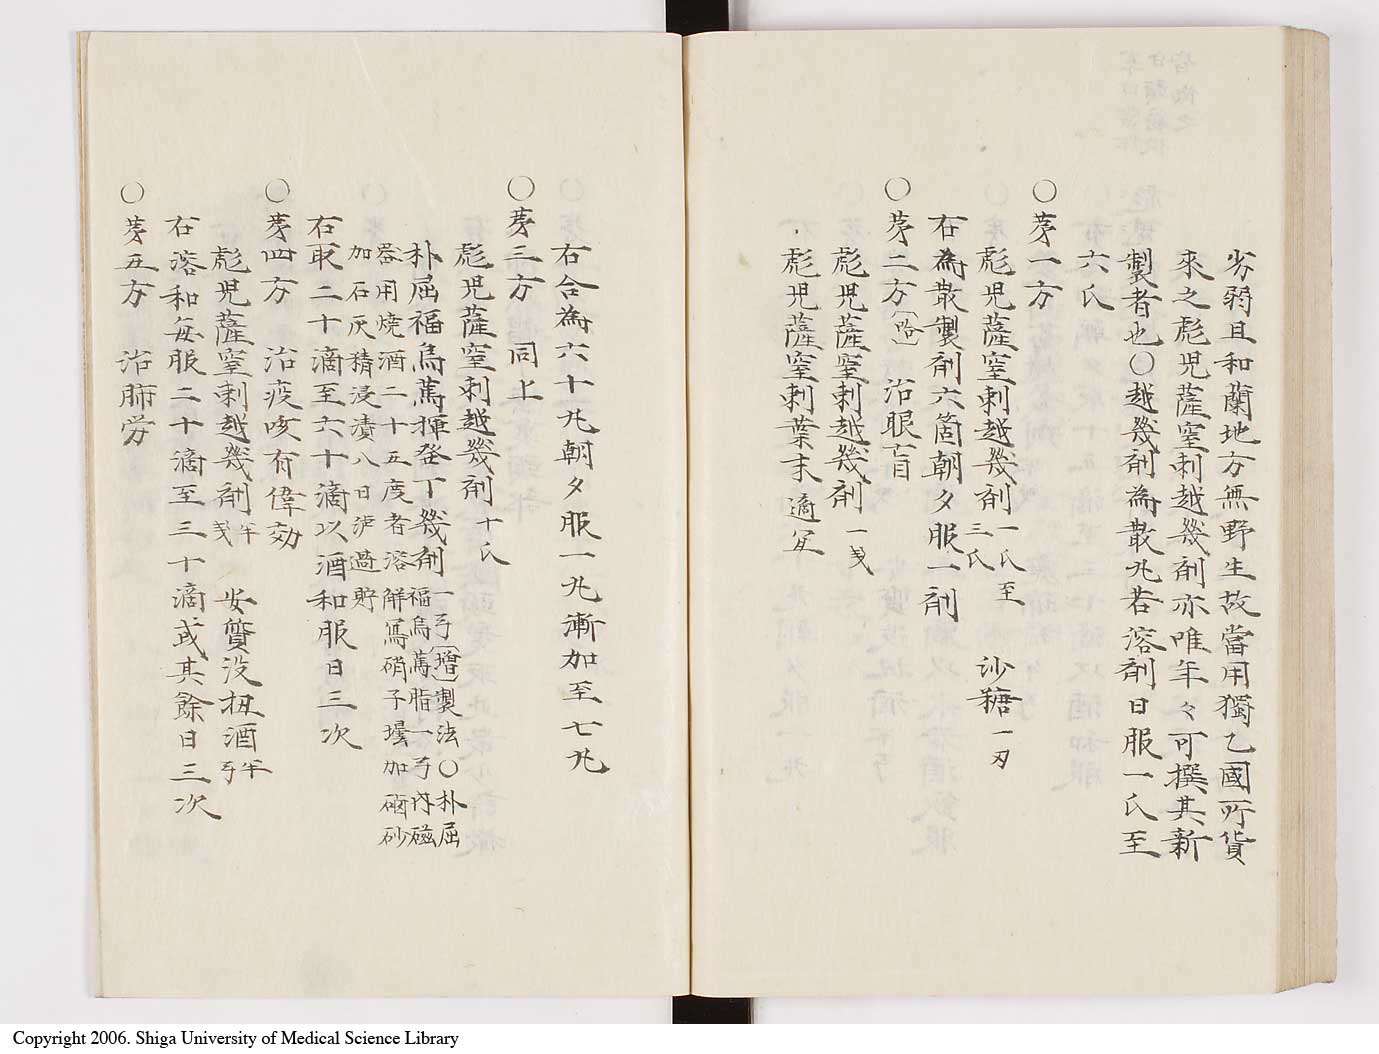 劣弱且和蘭地方無野生故當用獨乙國所貨
來之彪児薩窒刺越幾剤亦唯年々可撰其新
製者也〇越幾剤為散丸若溶剤日服一氏至
六氏
〇苐一方
彪児薩窒刺越幾剤 一氏至三氏 沙糖 一刃
右為散製剤六箇朝夕服一剤
〇苐二方 治眼盲
彪児薩窒刺越幾剤 一戔
彪児薩窒刺葉末 適宜
右合為六十丸朝夕服一丸漸加至七丸
〇苐三方 同上
彪児薩窒刺越幾剤 十氏
朴屈福烏萬揮発丁幾剤 一弓〔増〕製法〇朴屈福烏萬脂一弓内磁
蓉用焼酒二十五度者溶解写硝子壜加硇砂
加石灰精浸漬八日泸過貯
右取二十滴至六十滴以酒和服日三次
〇苐四方 治疫咳有偉効
彪児薩窒刺越幾剤 半戔 安質没扭酒 半弓
右溶和毎服二十滴至三十滴或其餘日三次
〇苐五方 治肺労
Copyright 2006. Shiga University of Medical Science Library